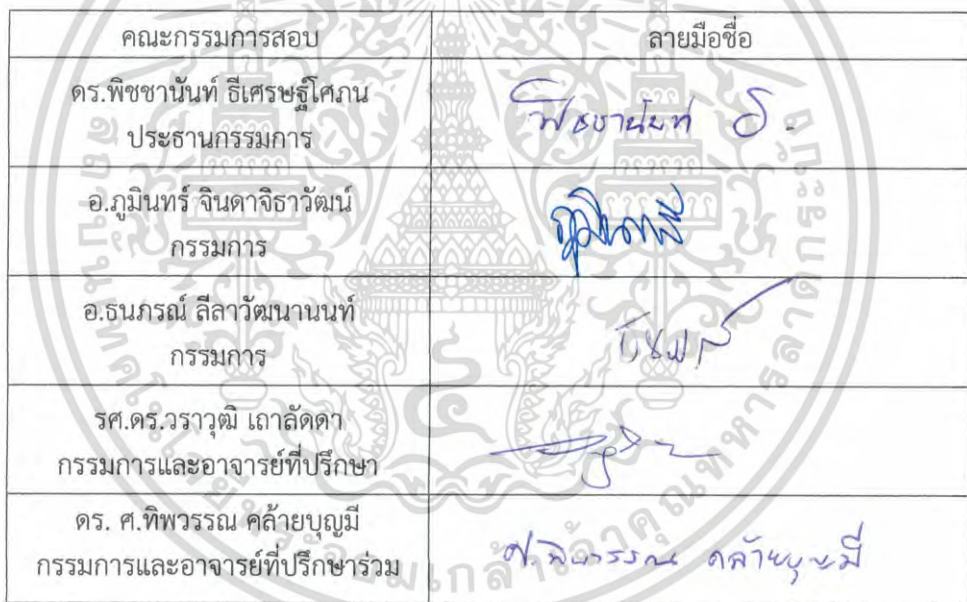 คณะกรรมการสอบ ลายมือชื่อ
ดร.พิชชานันท์ ธีเศรษฐ์โศภน
ประธานกรรมการ
พิชชานันท์ ธี.
อ.ภูมินทร์ จินดาจิธาวัฒน์
กรรมการ
อ.ธนภรณ์ ลีลาวัฒนานนท์
กรรมการ
รศ.ดร.วราวุฒิ เถาลัดดา
กรรมการและอาจารย์ที่ปรึกษา
ดร. ศ.ทิพวรรณ คล้ายบุญมี
กรรมการและอาจารย์ที่ปรึกษาร่วม
ศ.ทิพวรรณ คล้ายบุญมี
สถาบันเทคโนโลยีพระจอมเกล้าเจ้าคุณทหารลาดกระบัง